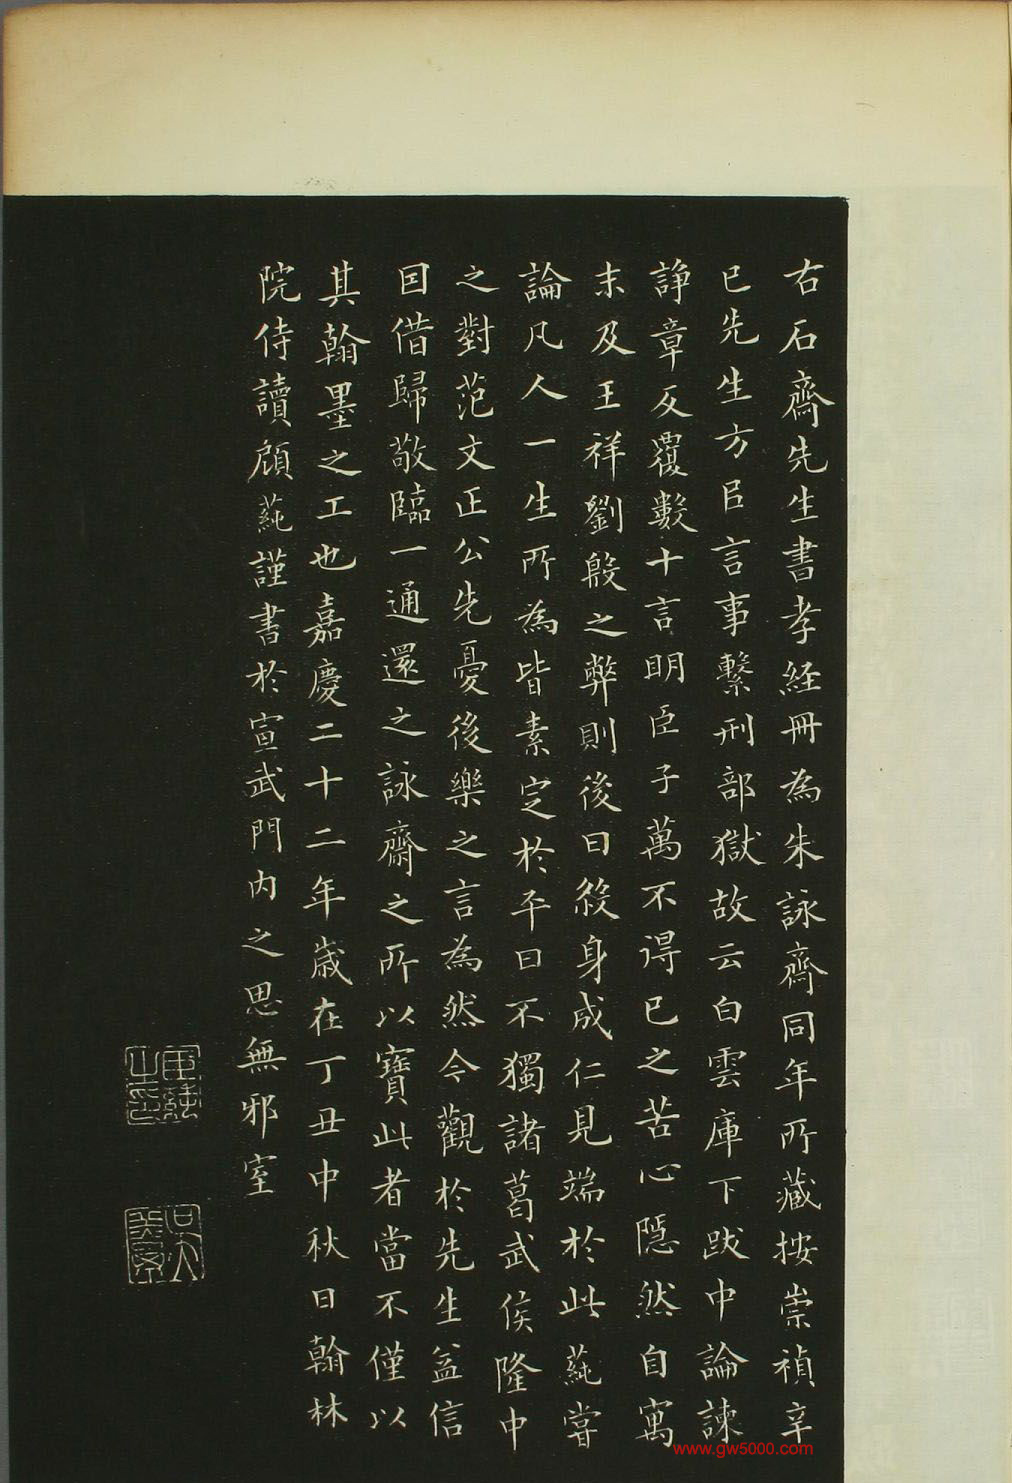 右石齋先生書孝経冊為朱詠齊同年所藏按崇禎辛
巳先生方㠯言事繫刑部獄故云白雲庫下跋中論諫
諍章反覆數十言明臣子萬不得已之苦心隱然自寓
末及王祥劉殷之弊則後日殺身成仁見端於此蒓嘗
論凡人一生所為皆素定於平日不獨諸葛武侯隆中
之對范文正公先憂後樂之言為然今觀於先生益信
因借歸敬臨一通還之詠齋之所以寶此者當不僅以
其翰墨之工也嘉慶二十二年歲在丁丑中秋日翰林
院侍讀顧蒓謹書於宣武門內之思無邪室
www.gw5000.com